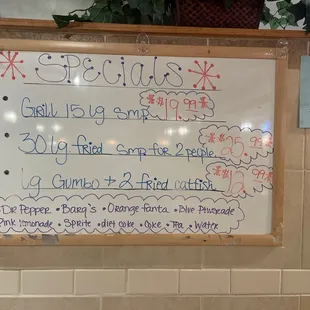 * Specials *
• Grill 15 lg smp *$19.99*
• 30 lg fried smp for 2 people $25.99
• lg Gumbo + 2 fried catfish $12.99
• Dr Pepper • Barq's • Orange fanta • Blue Powerade
• Pink lemonade • Sprite • diet coke • Coke • Tea • Water